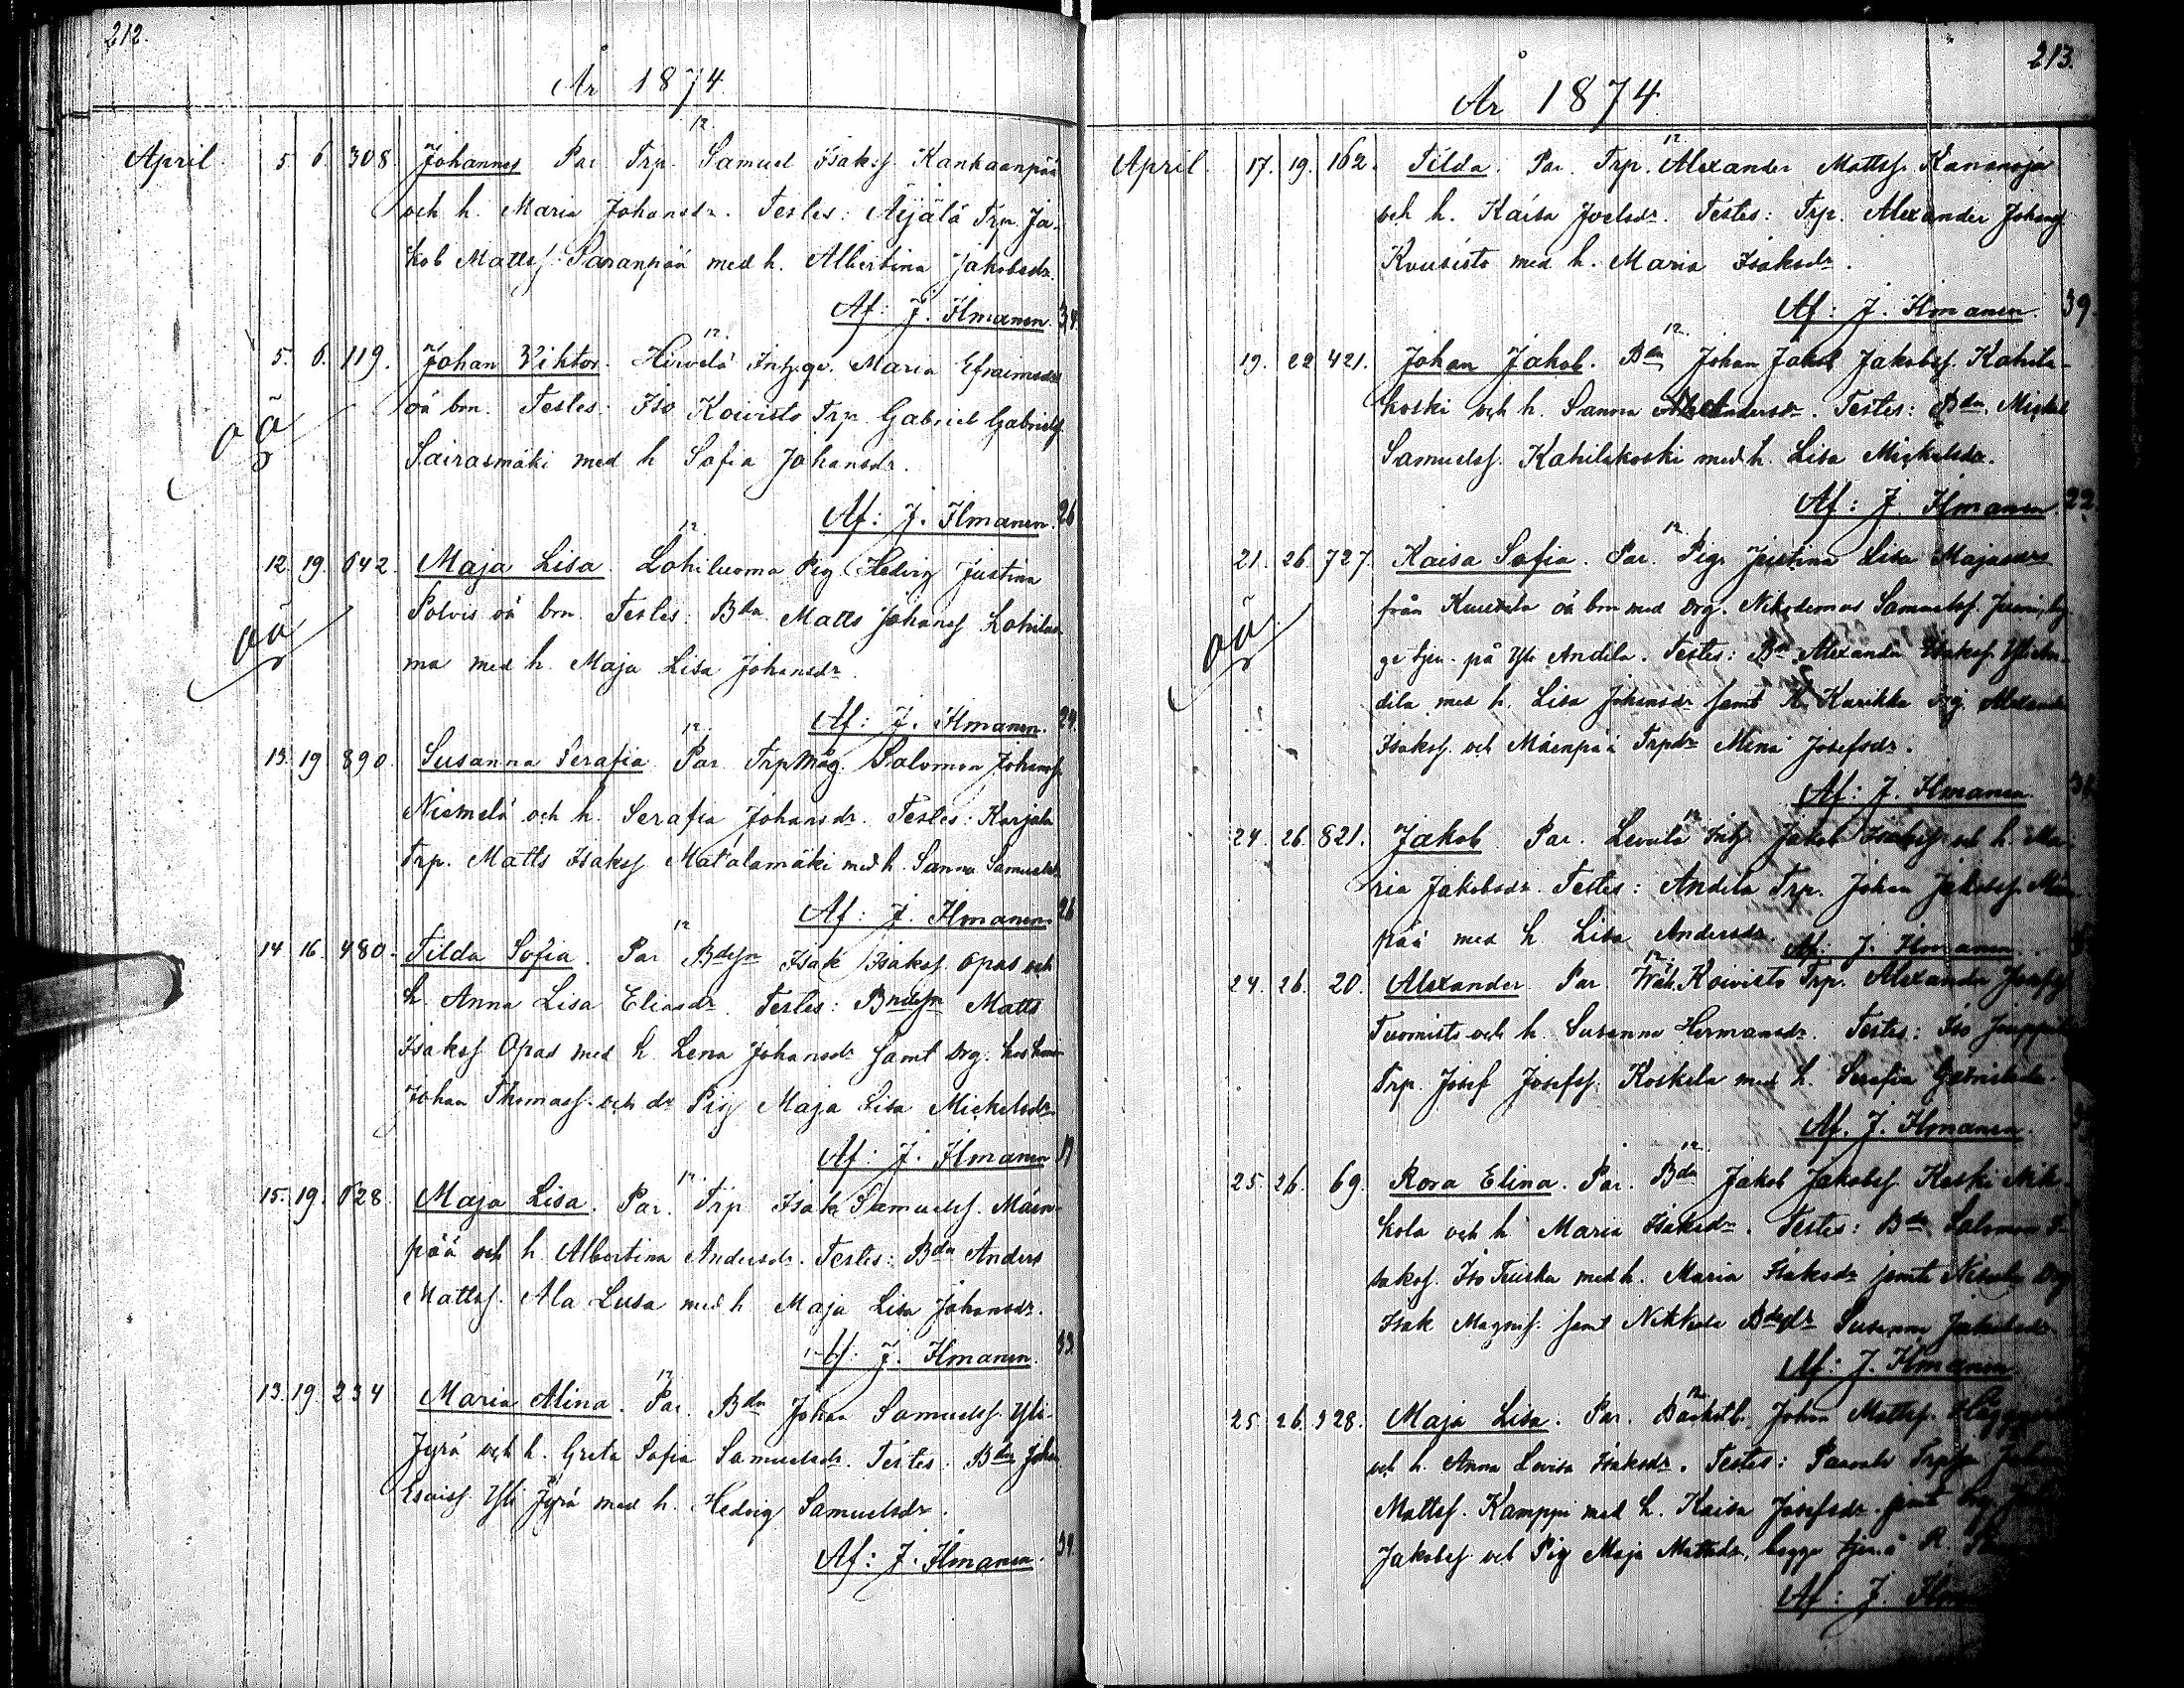 212.
År 1874.
April. 5. 6. 308. Johannes Par Trp. Samuel Isakss. Kankaanpää
och h. Maria Johansdr. Testes: Äijälä Trp. Ja-
kob Mattss. Paranpää med h. Albertina Jakobsdr.
Af: J. Ilmanen. 34.
5. 6. 119. Johan Viktor. Hirvelä Inh.qv. Maria Efraimsdr
oä brn. Testes: Iso Koivisto Trp. Gabriel Gabrielss.
oä
Sairasmäki med h Sofia Johansdr.
Af: J. Ilmanen. 26
12. 19. 642. Maja Lisa. Lohiluoma Pig Hedvig Justina
Polvis oä brn. Testes: Bdn Matts Johanss Lohiluo-
oä
ma med h. Maja Lisa Johansdr.
Af: J. Ilmanen. 24.
13. 19 890. Susanna Serafia Par Trpmåg. Salomon Johanss.
Niemelä och h. Serafia Johansdr. Testes: Karjala
Trp. Matts Isakss Matalamäki med h. Sanna Samuelsdr
Af: J. Ilmanen. 26
14 16. 480. Tilda Sofia. Par Bdesn Isak Isakss. Opas och
h Anna Lisa Eliasdr. Testes: Bndesn Matts
Isakss Opas med h Lena Johansdr samt Drg.
Johan Thomass. och dr Pig Maja Lisa Mickelsdr.
Af: J. Ilmanen
15. 19. 628. Maja Lisa. Par. Trp Isak Samuelss. Mäen-
pää och h. Albertina Andersdr. Testes: Bdn Anders
Mattss. Ala Lusa med h Maja Lisa Johansdr.
Af: J. Ilmanen. 33.
13. 19. 234 Maria Alina. Par. Bdn Johan Samuelss. Yli-
Jyrä och h. Greta Sofia Samuelsdr. Testes: Bdn Johan
Esaiss. Yli Jyrä med h. Hedvig Samuelsdr.
Af: J. Ilmanen.
213.
År 1874.
April. 17. 19. 162. Tilda. Par. Trp. Alexander Mattss. Kananoja
och h. Kaisa Joelsdr. Testes: Trp. Alexander Johanss
Kuusisto med h. Maria Isaksdr.
Af: J. Ilmanen. 39
19. 22 421. Johan Jakob. Bdn Johan Jakob Jakobss. Kahila-
koski och h. Sanna Alexandersdr. Testes: Bdn. Mickel
Samuelss. Kahilakoski med h. Lisa Mickelsdr.
Af: J. Ilmanen 22.
21. 26. 727. Kaisa Sofia. Par. Pig. Justina Lisa Majasdr
från oä brn med Drg. Nikodemus Samuelss.
oä
ge tjen. på Yli Andila. Testes: Bdn Alexander Isakss. Yli An-
dila med h. Lisa Johansdr samt K. Kurikka Drg. Alexander
Isakss. och Mäenpää Trpdr Mina Josefsdr.
Af: J. Ilmanen.
24. 26. 821. Jakob. Par. Inh. Jakob Isakss och h. Ma-
ria Jakobsdr. Testes: Andila Trp. Johan Jakobss. Mäen-
pää med h. Lisa Andersdr. Af: J. Ilmanen
24. 26. 20. Alexander. Par. Wäh. Koivisto Trp. Alexander Josefss
Tuomisto och h. Susanna Hermansdr. Testes: Iso
Trp. Josef Josefss. Koskela med h. Serafia Gabrielsdr.
Af. J. Ilmanen.
25. 26. 69. Rosa Elina. Par. Bdn Jakob Jakobss. Koski Nik-
kola och h Maria Isaksdr. Testes: Bdn Salomon I-
sakss. Iso med h. Maria Isaksdr samt Drg
Isak Magnss. samt Nikkola Bdedr Susanna Jakobsdr
Af: J. Ilmanen
25. 26. 328. Maja Lisa. Par. Johan Mattss.
och h. Anna Lovisa Isaksdr. Testes:
Mattss. Kamppi med h. Kaisa Josefsdr. samt Drg
Jakobss. och Pig Maja Mattsdr, begge tjen. å R.
Af: J.